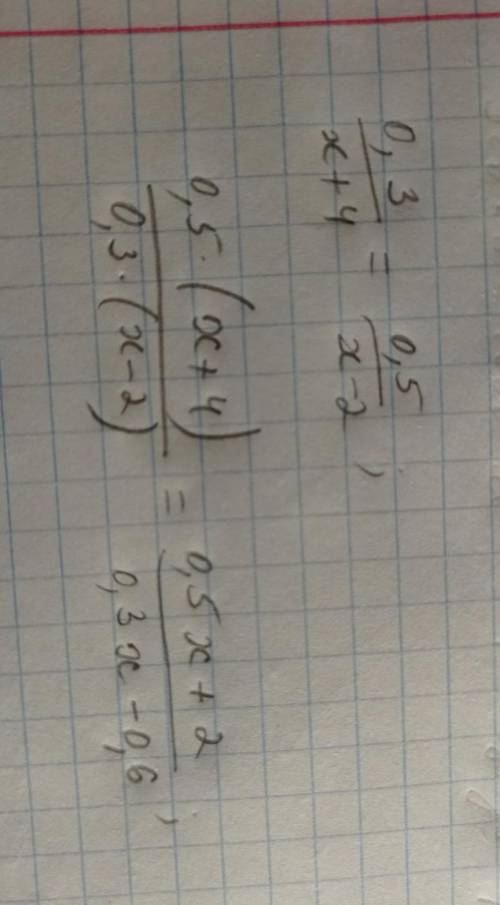 0,3/(x+4) = 0,5/(x-2);
0,5·(x+4)/0,3·(x-2) = (0,5x+2)/(0,3x-0,6);